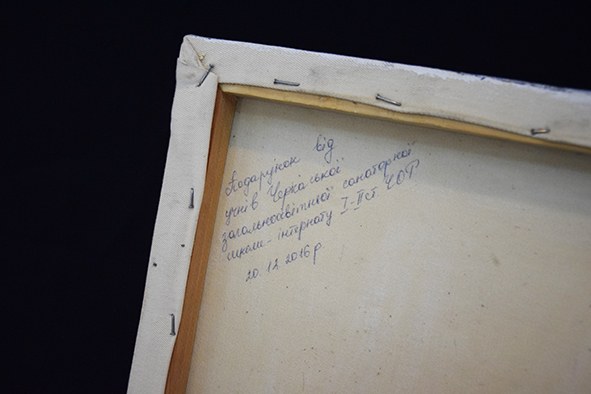 Подарунок від
учнів Черкаської
загальноосвітньої санаторної
школи-інтернату І-ІІ ст ЧОР
20.12.2016р